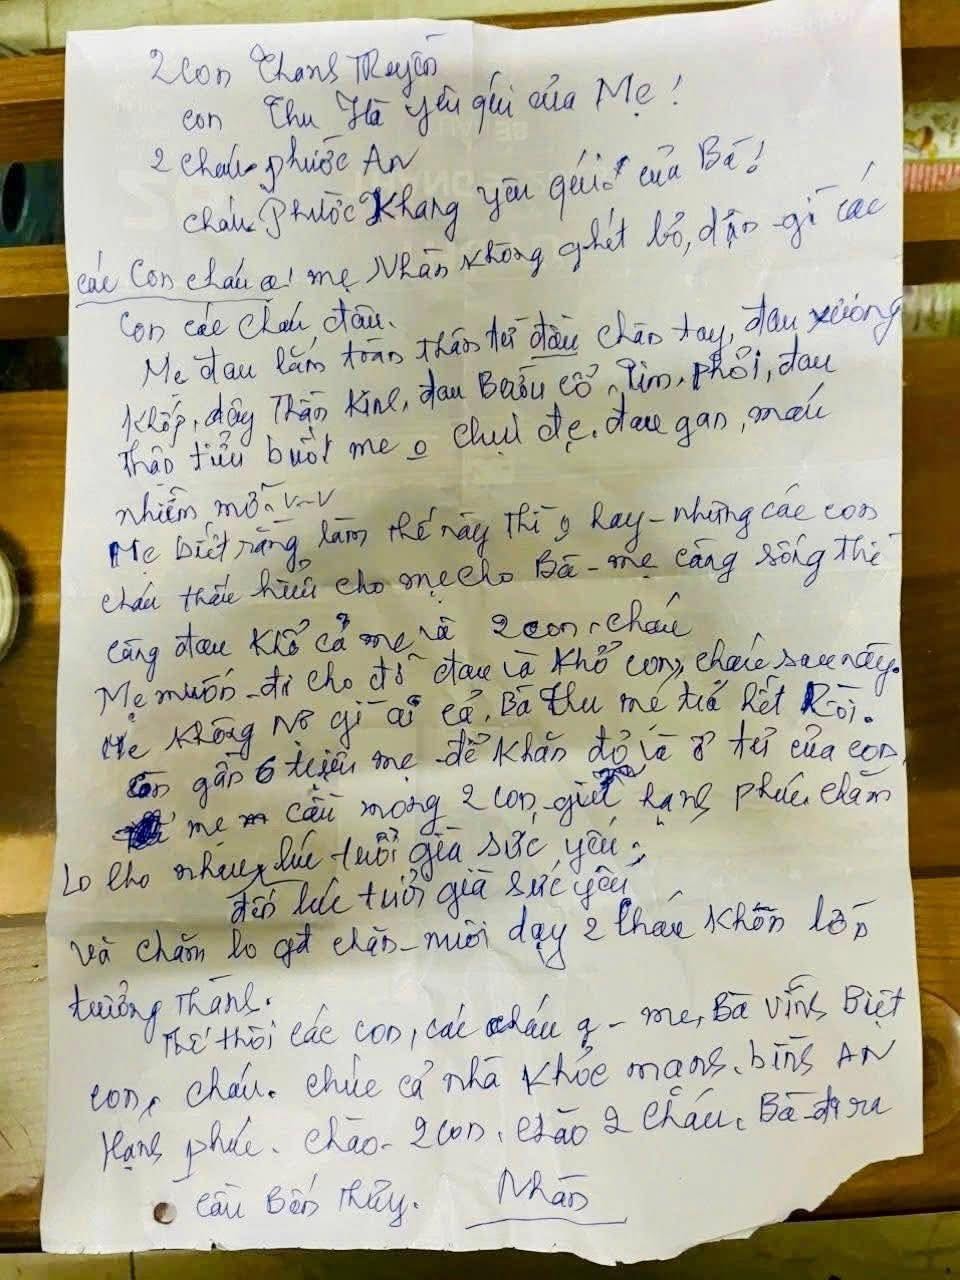 2 con Thanh Truyền
con Thu Hà yêu quí của Mẹ!
2 cháu Phước An
cháu Phước Khang yêu quí của Bà!
các con cháu ạ! mẹ Nhàn không ghét bỏ, dận gì các
con các cháu đâu.
Mẹ đau lắm toàn thân từ đầu chân tay, đau xương
khớp, dây thần kinh, đau Bướu cổ, Tim, phổi, đau
thận tiểu buốt mẹ o chịu đc. đau gan, máu
nhiễm mỡ v-v
Mẹ biết rằng làm thế này thì o hay - nhưng các con
cháu thấu hiểu cho mẹ cho Bà - mẹ càng sống thì
càng đau khổ cả mẹ và 2 con, cháu
Mẹ muốn đi cho đỡ đau và khổ con, cháu sau này.
Mẹ không nợ gì ai cả. Bà Thu mẹ trả hết Rồi.
Còn gần 6 triệu mẹ để khăn đỏ và ở tủ của con
mẹ cầu mong 2 con giữ hạnh phúc chăm
Lo cho nhau lúc tuổi già sức yếu.
đến lúc tuổi già sức yếu
và chăm lo gđ chăn nuôi dạy 2 cháu khôn lớn
trưởng thành.
Thế thôi các con, các cháu ạ - mẹ, Bà vĩnh Biệt
con, cháu. chúc cả nhà khỏe mạnh, bình AN
Hạnh phúc. chào 2 con, chào 2 cháu. Bà đi ra
cầu Bến Thủy. Nhàn